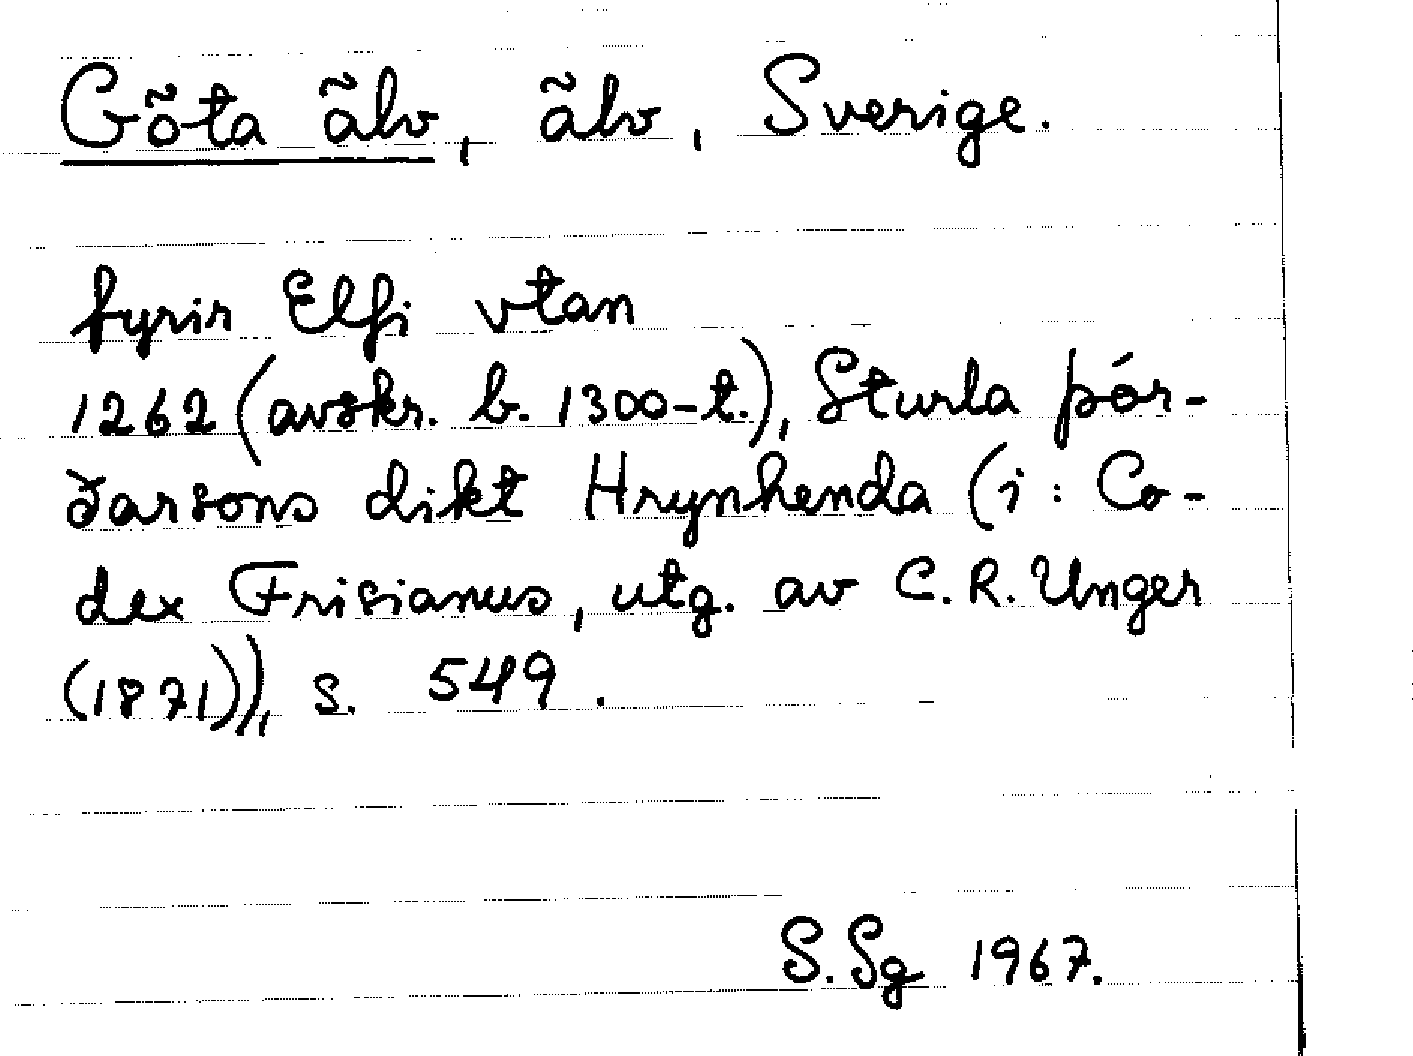 Göta älv, älv, Sverige.
fyrir Elfi vtan
1262 (avskr. b. 1300-t.), Sturla þór-
ðarsons dikt Hrynhenda (i: Co-
dex Frisianus, utg. av C. R. Unger
(1871)), s. 549.
S. Sg 1967.